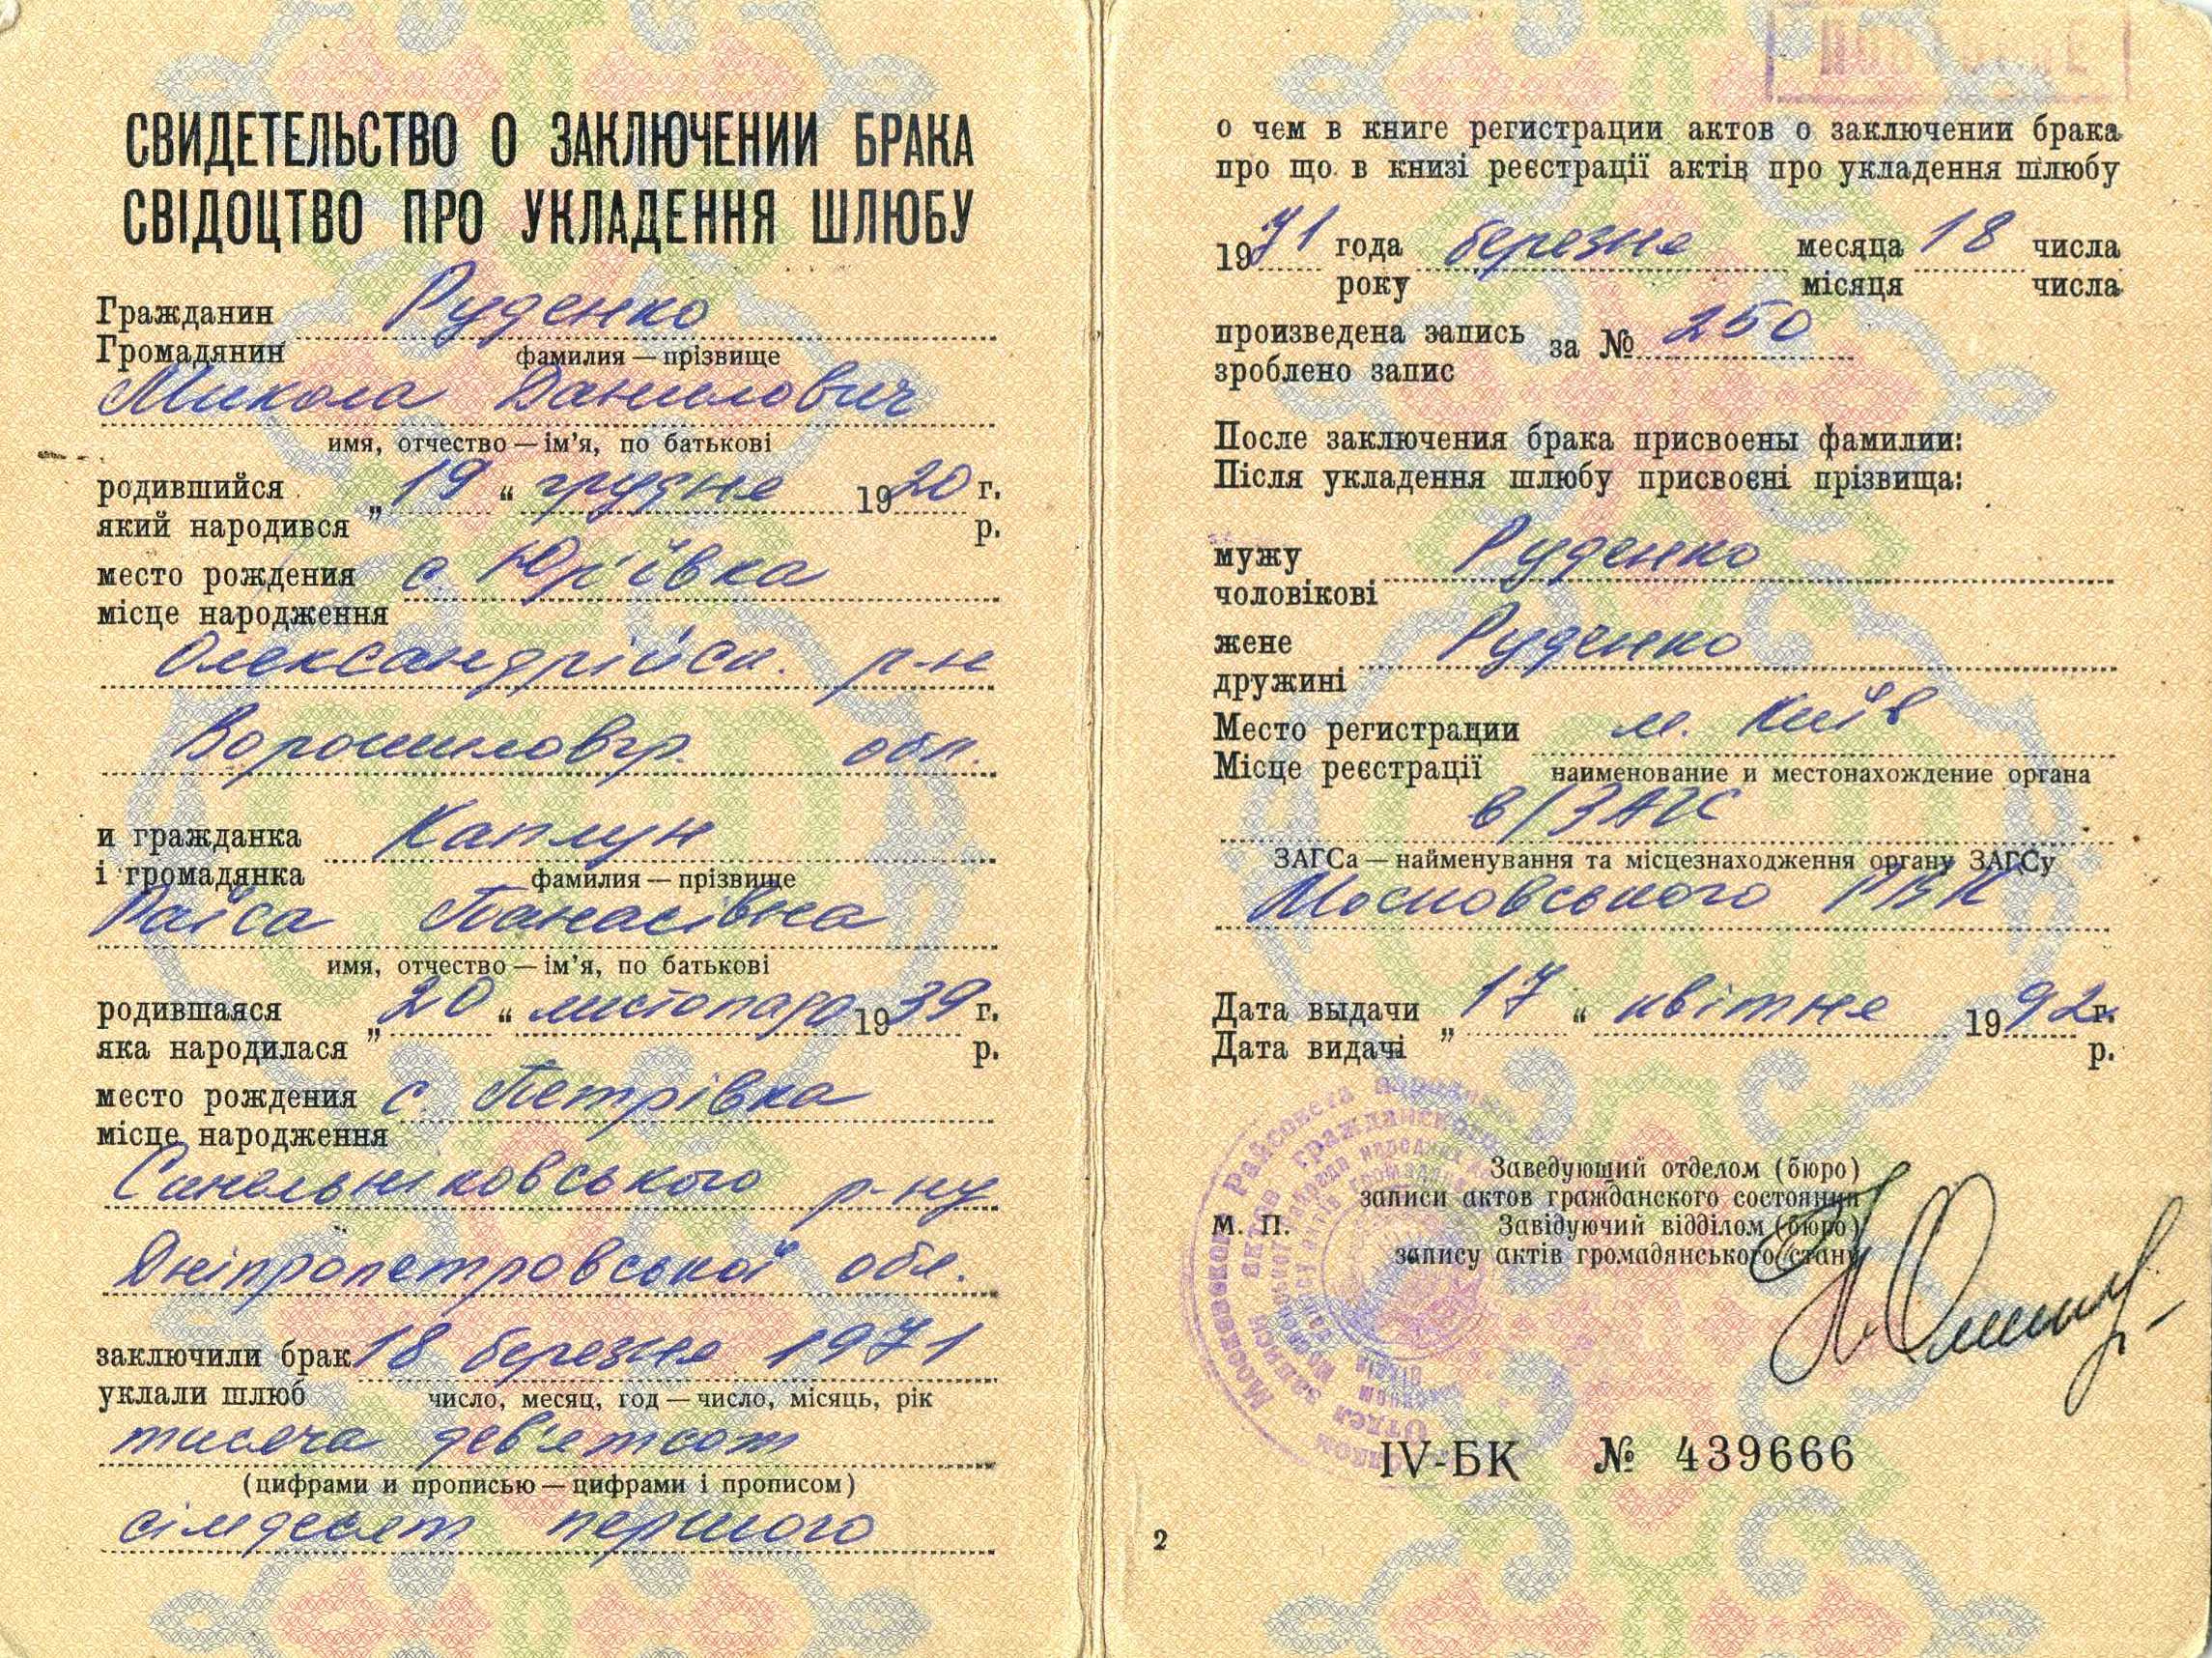 СВИДЕТЕЛЬСТВО О ЗАКЛЮЧЕНИИ БРАКА
СВІДОЦТВО ПРО УКЛАДЕННЯ ШЛЮБУ
Гражданин Руденко
Громадянин фамилия — прізвище
Микола Данилович
имя, отчество — ім'я, по батькові
родившийся „ 19 “ грудня 1920 г.
який народився р.
место рождения с. Юр'ївка
місце народження
Олександрійськ. р-н
Ворошиловгр. обл.
и гражданка Каплун
і громадянка фамилия — прізвище
Раїса Панасівна
имя, отчество — ім'я, по батькові
родившаяся „ 20 “ листопада 1939 г.
яка народилася р.
место рождения с. Петрівка
місце народження
Синельніковського р-ну
Дніпропетровської обл.
заключили брак 18 березня 1971
уклали шлюб число, месяц, год — число, місяць, рік
тисяча дев'ятсот
(цифрами и прописью — цифрами і прописом)
сімдесят першого
о чем в книге регистрации актов о заключении брака
про що в книзі реєстрації актів про укладення шлюбу
1971 года березня месяца 18 числа
року місяця числа
произведена запись за № 250
зроблено запис
После заключения брака присвоены фамилии:
Після укладення шлюбу присвоєні прізвища:
мужу Руденко
чоловікові
жене Руденко
дружині
Место регистрации м. Київ
Місце реєстрації наименование и местонахождение органа
в/ЗАГС
ЗАГСа — найменування та місцезнаходження органу ЗАГСу
Московського РВК
Дата выдачи „ 17 “ квітня 1992 г.
Дата видачі р.
Заведующий отделом (бюро)
записи актов гражданского состояния
М. П. Завідуючий відділом (бюро)
запису актів громадянського стану
IV-БК № 439666
2